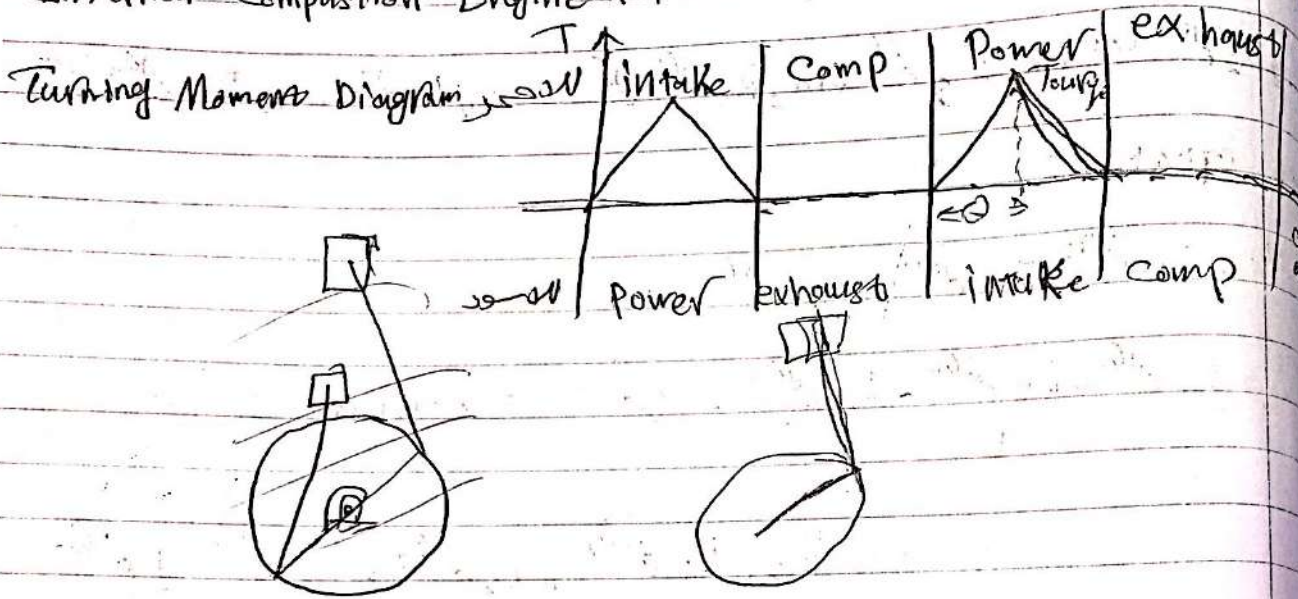 Combustion Engine
T
Turning Moment Diagram
intake
Comp
Power
exhaust
Power
exhaust
intake
Comp